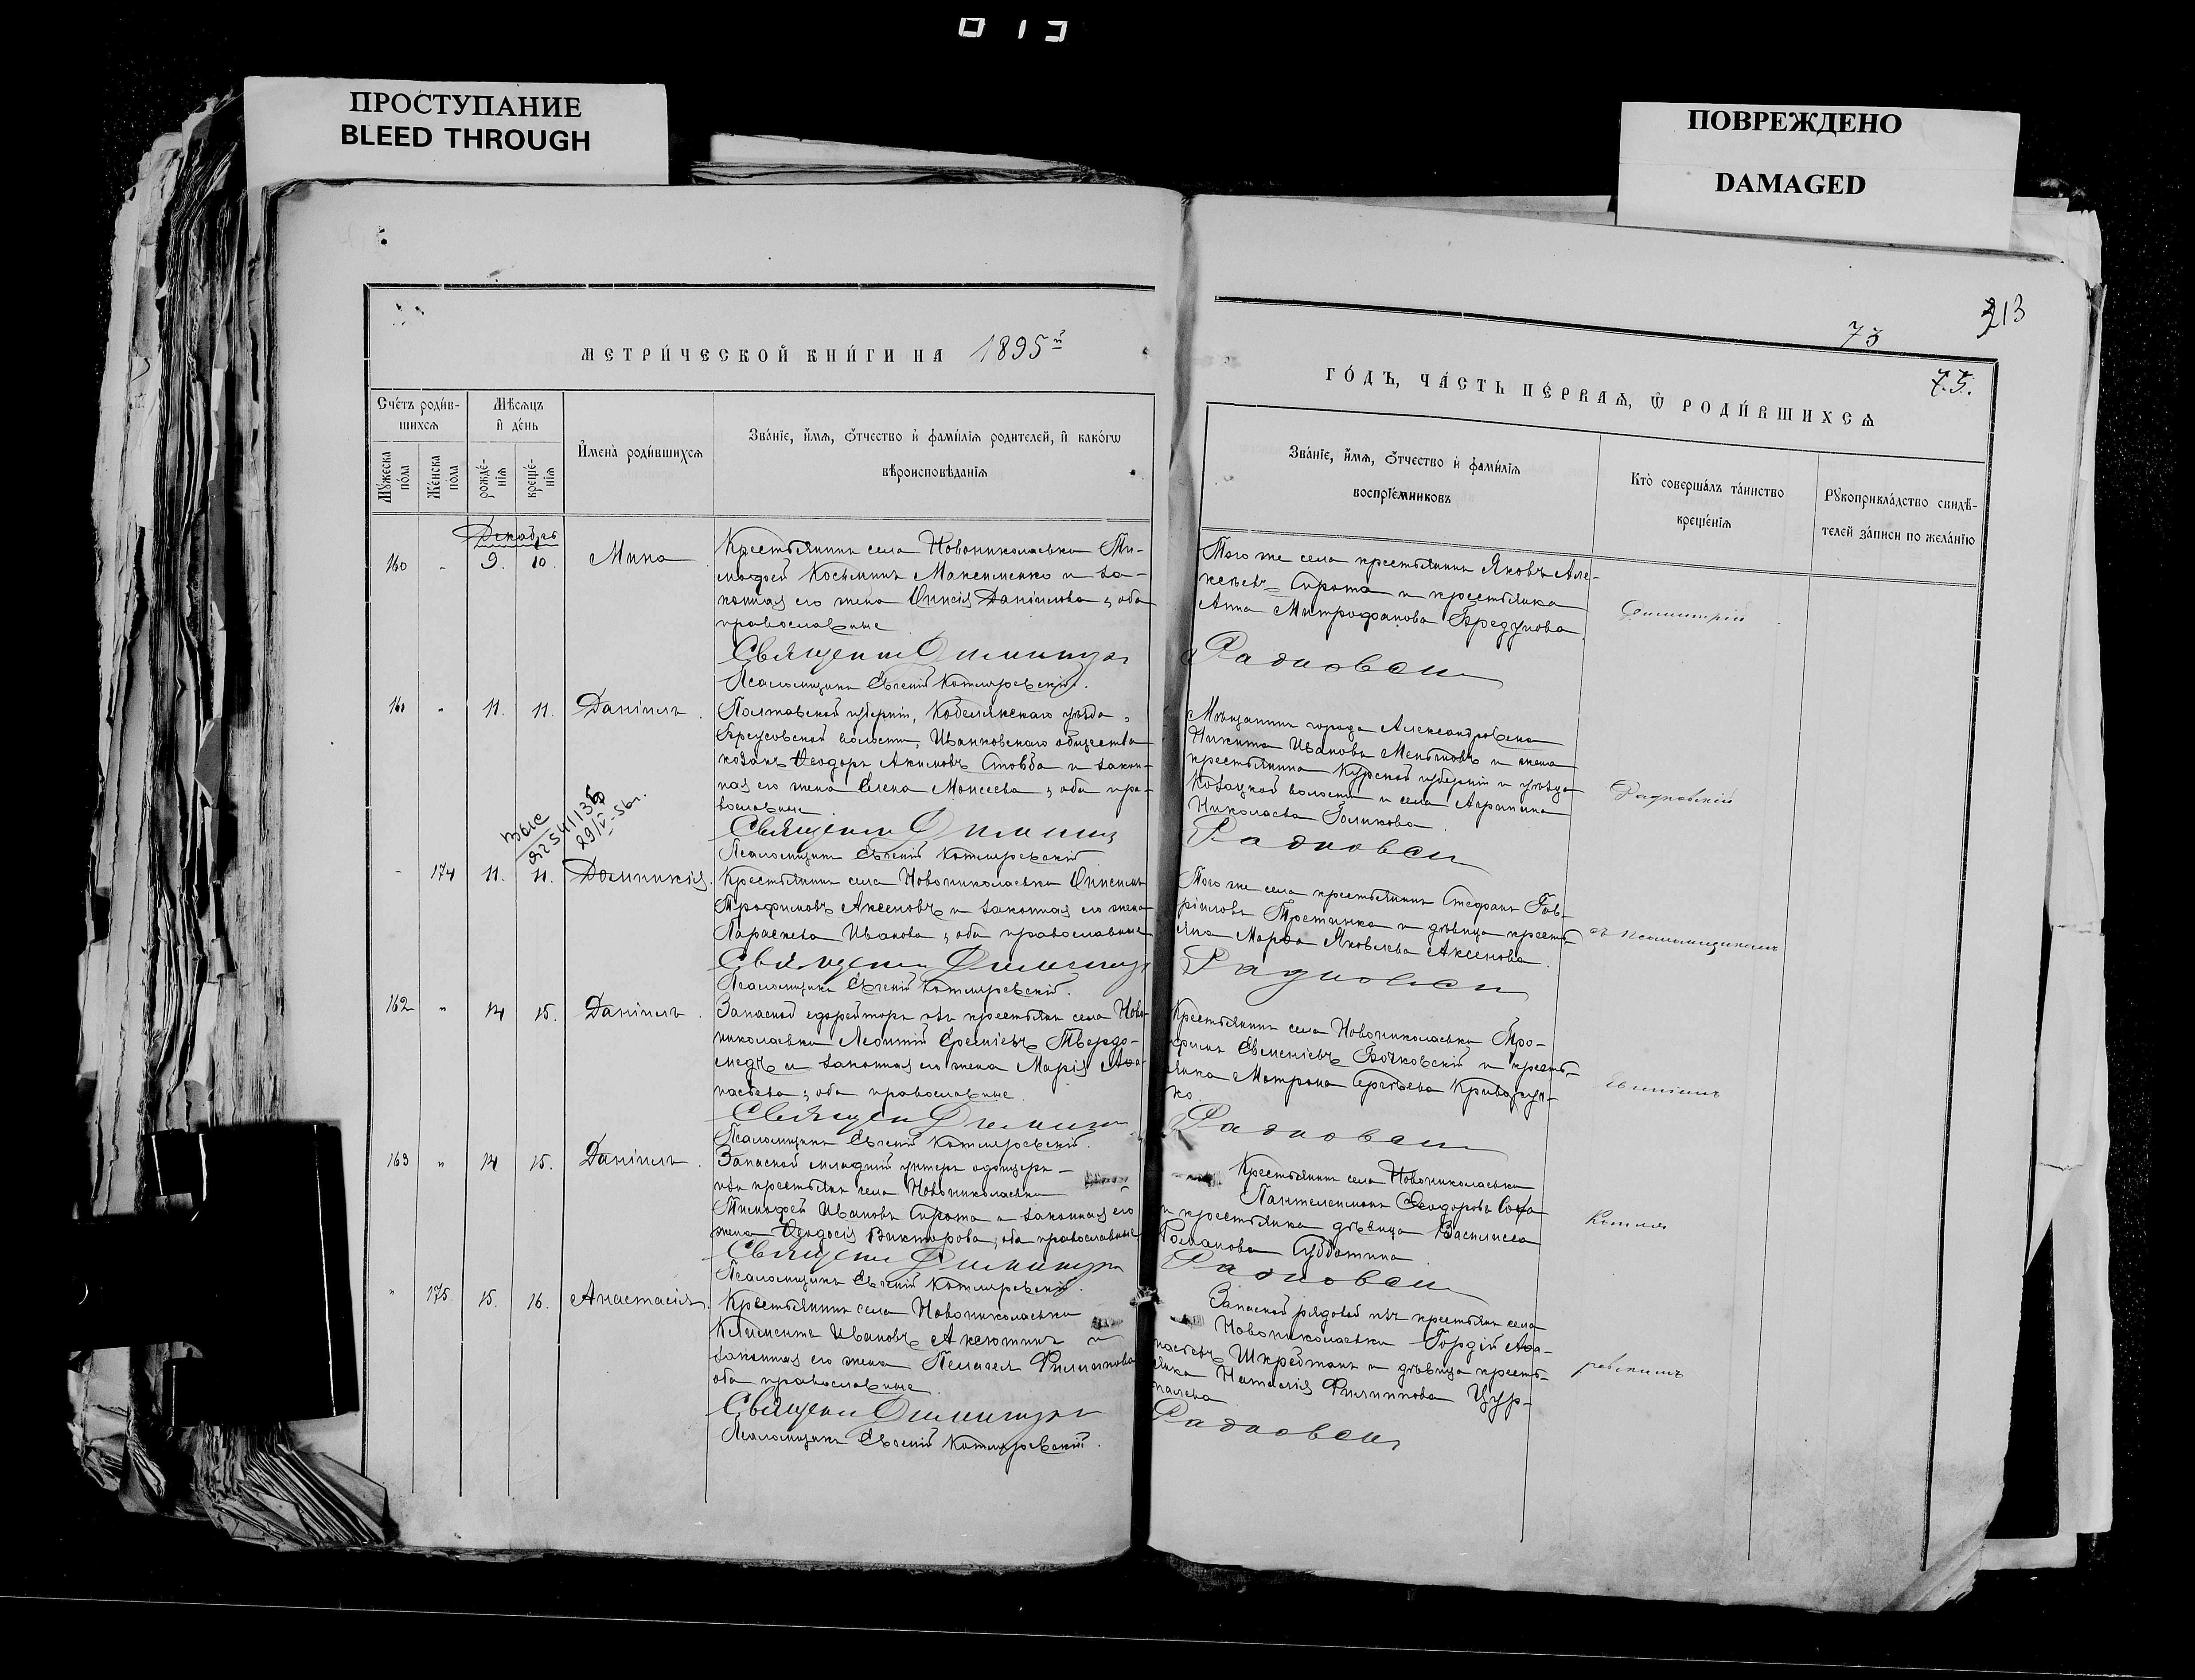 ПРОСТУПАНИЕ
BLEED THROUGH
ПОВРЕЖДЕНО
DAMAGED
213
73
75.
МЕТРИ́ЧЕСКОЙ КНИ́ГИ НА 1895й
ГО́ДЪ, ЧА́СТЬ ПЕ́РВАѦ, Ѡ҆ РОДИ́ВШИХСѦ
Сче́тъ роди́в-
шихсѧ
Мѣ́сѧцъ
и҆ де́нь
Му́жеска по́ла
Же́нска по́ла
рожде́-
нїѧ
креще́-
нїѧ
И҆мена̀ роди́вшихсѧ
Зва́нїе, и҆́мѧ, ѻ҆́тчество и҆ фами́лїѧ родителей, и҆ како́гѡ
вѣроисповѣ́данїѧ
Зва́нїе, и҆́мѧ, ѻ҆́тчество и҆ фами́лїѧ
воспрїе́мниковъ
Кто̀ соверша́лъ та́инство
креще́нїѧ
Рꙋкоприкла́дство свидѣ́-
телей за́писи по жела́нїю
Декабрь
160 " 9. 10. Мина
Крестьянинъ села Новониколаевки Ти-
мофей Косьминъ Максименко и за-
конная его жена Онисія Даніилова, оба
православные
Священн Димитрі
Псаломщикъ Евгеній Котляревскій.
Того же села крестьянинъ Яковъ Але-
ксѣевъ Сирота и крестьянка
Анна Митрофанова Бредунова.
Радковскі
Димитрій
161 " 11. 11. Даніилъ.
Полтавской губерніи, Кобелякскаго уѣзда,
Бреусовской волости, Иванковскаго общества
козакъ Ѳеодоръ Акимовъ Стовба и закон-
ная его жена Елена Моисеева, оба пра-
вославные
Священн Димитрі
Псаломщикъ Евгеній Котляревскій
Мѣщанинъ города Александровска
Никита Ивановъ Меньшовъ и жена
крестьянина Курской губерніи и уѣзда
волости и села Агрипина
Николаева Голикова.
Радковскі
Радковскій
29/IV-56г.
" 174 11. 11. Домникія.
Крестьянинъ села Новониколаевки Онисимъ
Трофимовъ Аксеновъ и законная его жена
Параскева Иванова, оба православные
Священн Димитрі
Псаломщикъ Евгеній Котляревскій.
Того же села крестьянинъ Стефанъ Гав-
ріиловъ и дѣвица кресть-
янка Марѳа Яковлева Аксенова.
Радковскі
съ псаломщикомъ
162 " 14 15. Даніилъ.
Запасной ефрейторъ изъ крестьянъ села Ново-
николаевки Леонтій Еремѣевъ Твердо-
медъ и законная его жена Марія Аѳа-
насьева, оба православные
Священн Димитрі
Псаломщикъ Евгеній Котляревскій.
Крестьянинъ села Новониколаевки Тро-
фимъ Евменіевъ Бочковскій и кресть-
янка Матрона Сергѣева
ко.
Радковскі
Евгеніемъ
163 " 14 15. Даніилъ.
Запасной младшій унтеръ офицеръ
изъ крестьянъ села Новониколаевки
Тимофей Ивановъ Сирота и законная его
жена Ѳеодосія Викторова, оба православные
Священн Димитрі
Псаломщикъ Евгеній Котляревскій.
Крестьянинъ села Новониколаевки
Пантелеимонъ Ѳеодоровъ
и крестьянка дѣвица Василиса
Романова Субботина
Радковскі
Котля
" 175. 15. 16. Анастасія.
Крестьянинъ села Новониколаевки
Климентъ Ивановъ Аксютинъ и
законная его жена Пелагея Филиппова
оба православные.
Священн Димитрі
Псаломщикъ Евгеній Котляревскій.
Запасной рядовой изъ крестьянъ села
Новониколаевки Гордій Аѳа-
насьевъ и дѣвица кресть-
янка Наталія Филиппова
Радковскі
ревскимъ